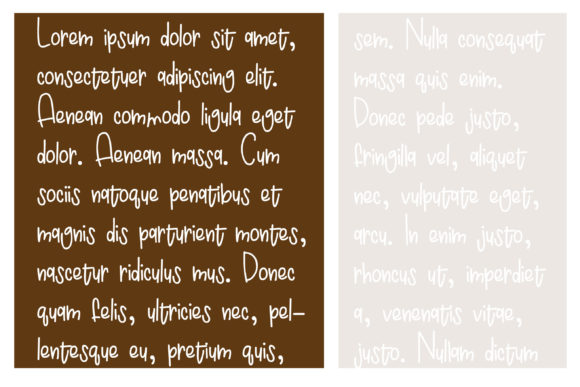 Lorem ipsum dolor sit amet,
consectetuer adipiscing elit.
Aenean commodo ligula eget
dolor. Aenean massa. Cum
sociis natoque penatibus et
magnis dis parturient montes,
nascetur ridiculus mus. Donec
quam felis, ultricies nec, pel-
lentesque eu, pretium quis,
sem. Nulla consequat
massa quis enim.
Donec pede justo,
fringilla vel, aliquet
nec, vulputate eget,
arcu. In enim justo,
rhoncus ut, imperdiet
a, venenatis vitae,
justo. Nullam dictum